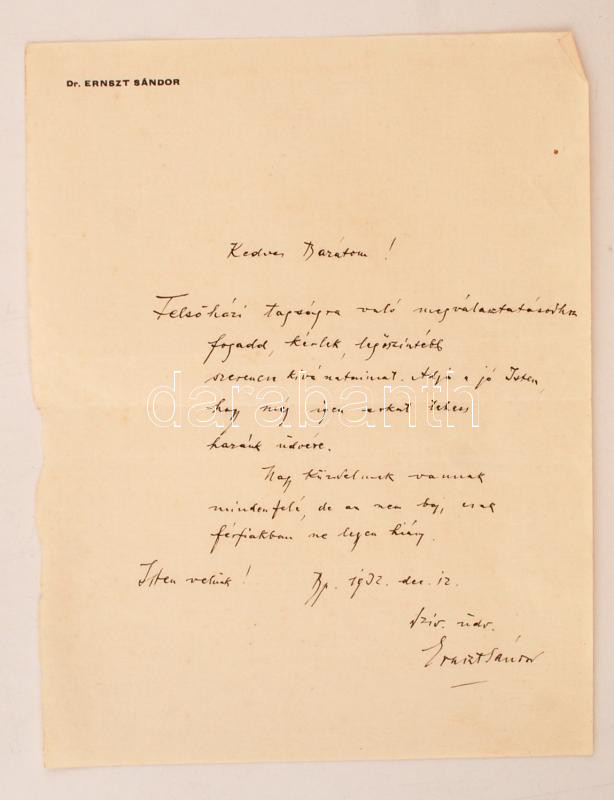 Dr. ERNSZT SÁNDOR
Kedves Barátom!
Felsőházi tagságra való megválasztatásodhoz
fogadd, kérlek, legőszintébb
szerencse kívánataimat. Adja a jó Isten,
hogy még igen sokat tehess
hazánk üdvére.
Nagy küzdelmek vannak
mindenfelé, de az nem baj, csak
férfiakban ne legyen hiány.
Isten velünk!
Bp. 1932. dec. 12.
Szív. üdv.
Ernszt Sándor
darabanth